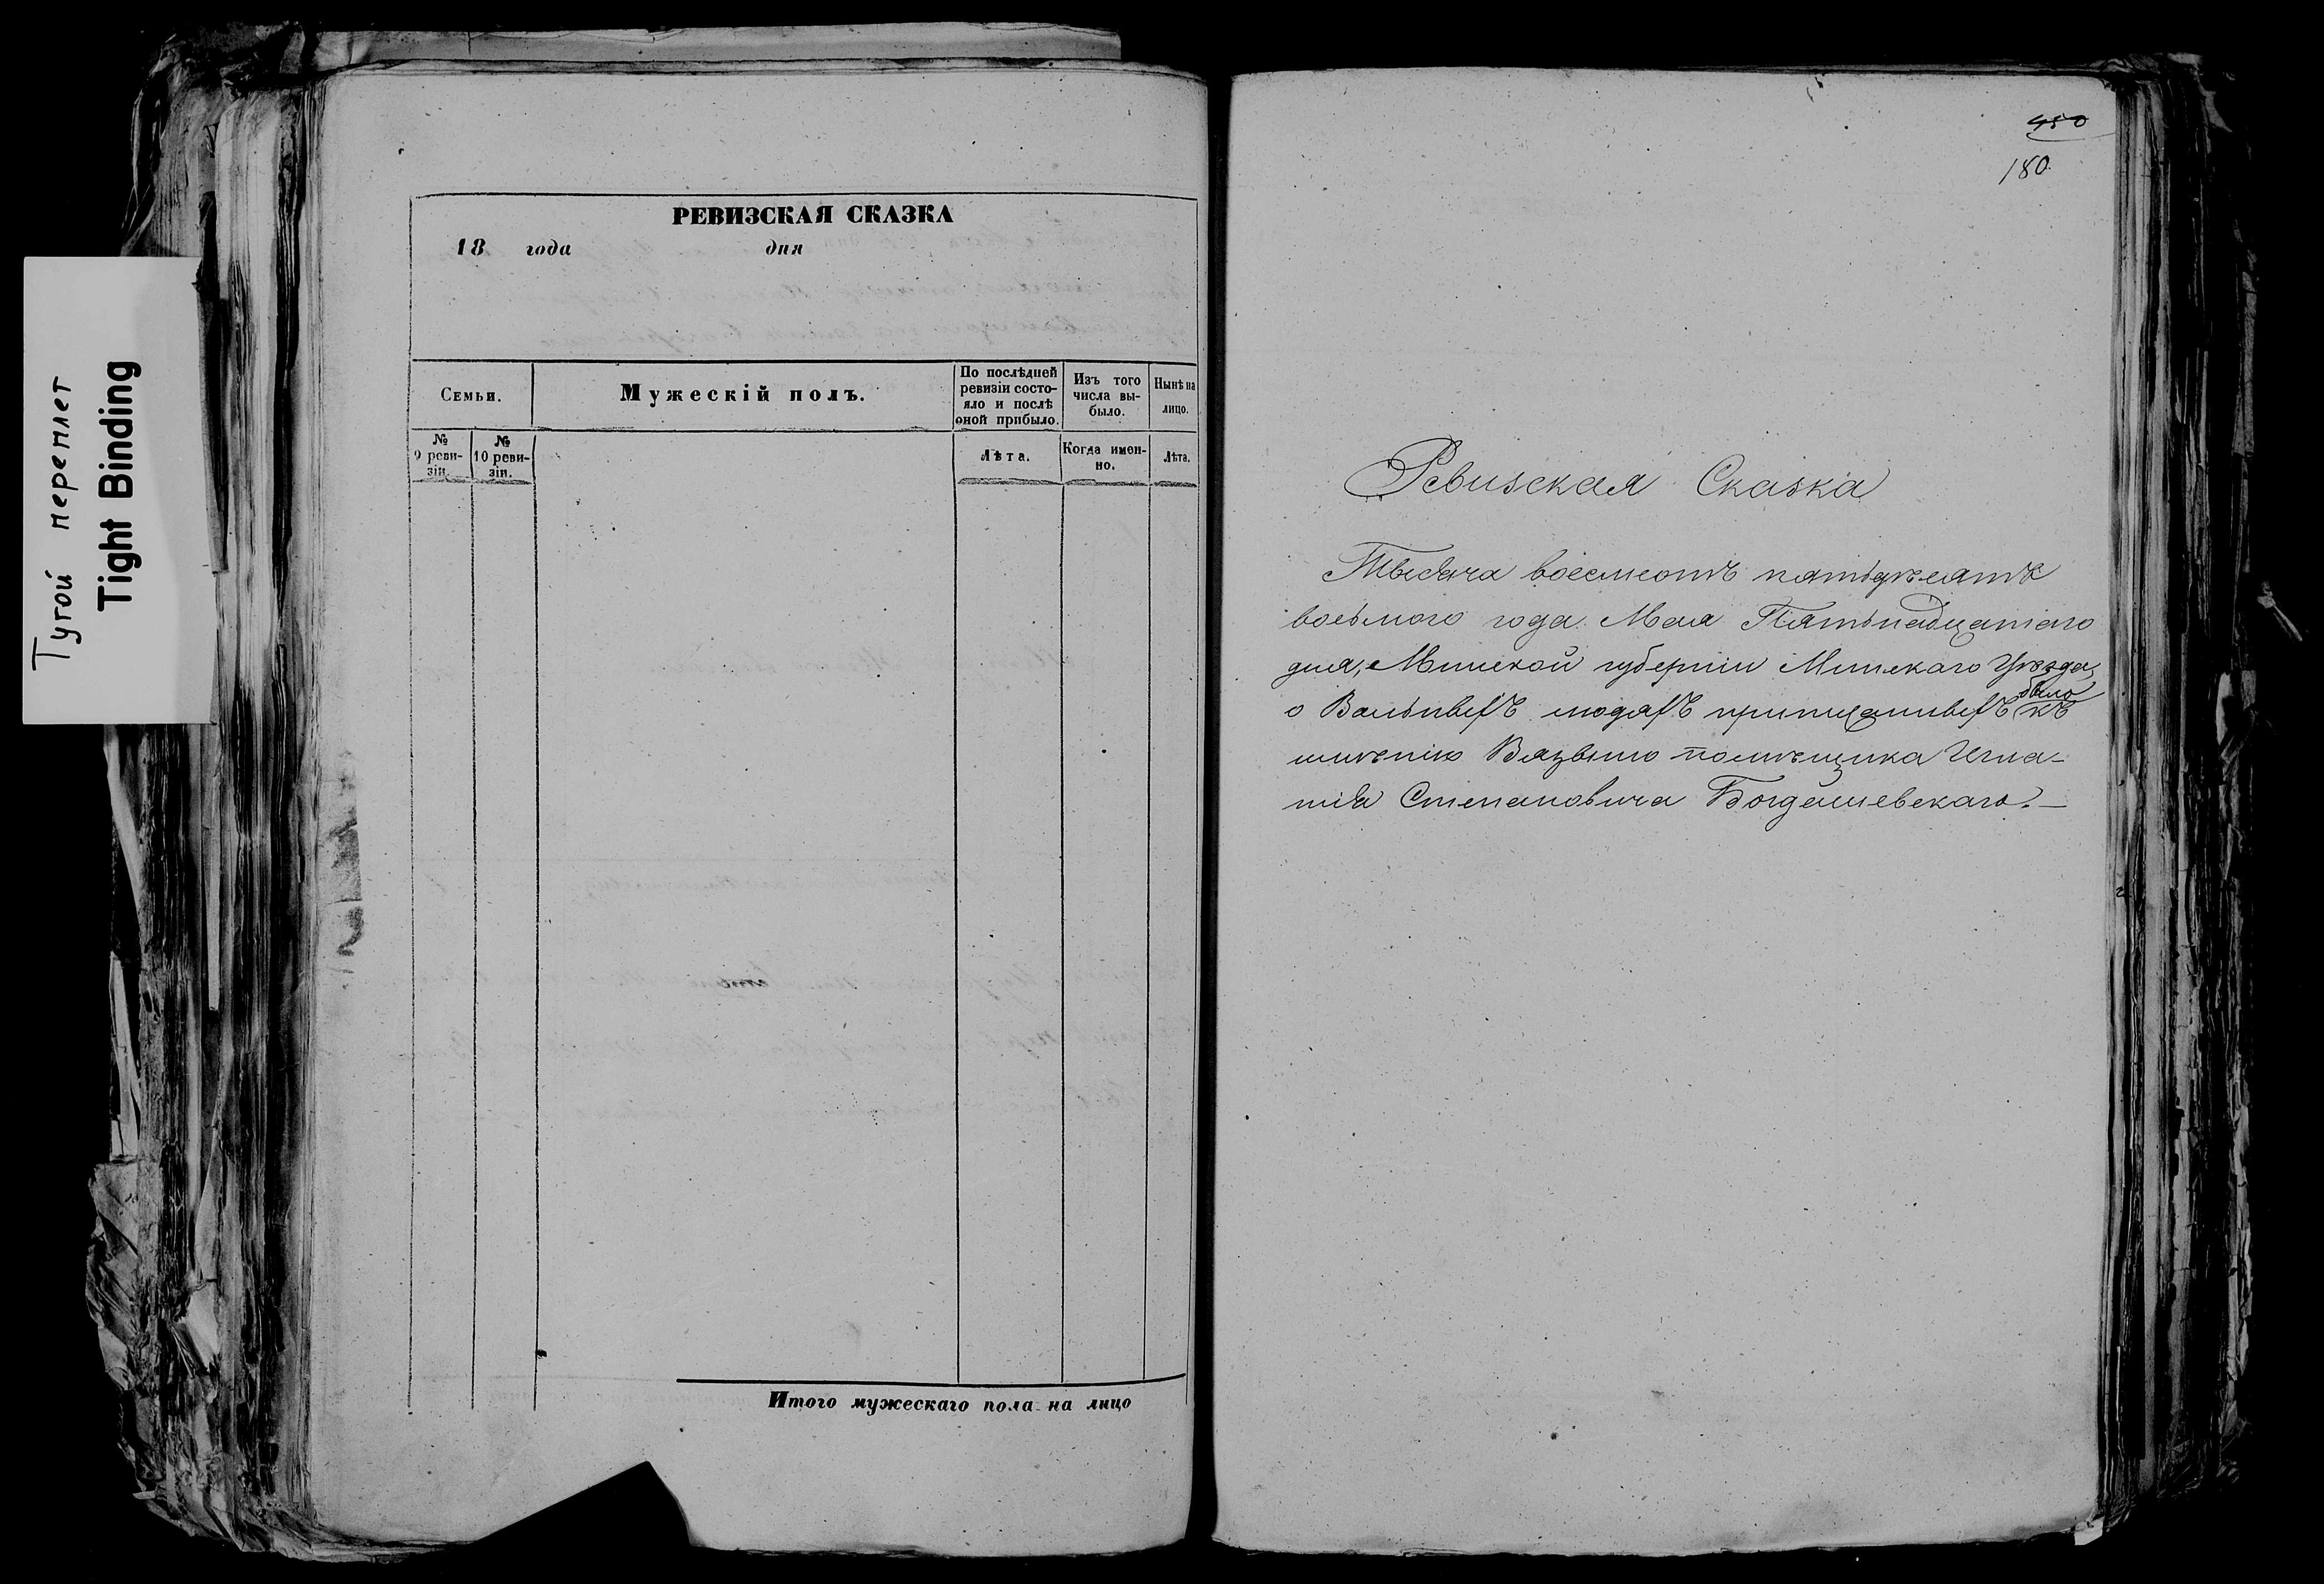 Тугой переплет
Tight Binding
РЕВИЗСКАЯ СКАЗКА
18 года дня
Семьи.
Мужескій полъ.
По послѣдней ревизіи состояло и послѣ оной прибыло.
Изъ того числа выбыло.
Нынѣ на лицо.
№ 9 ревизіи.
№ 10 ревизіи.
Лѣта.
Когда именно.
Лѣта.
Итого мужескаго пола на лицо
450
180.
Ревизская Сказка
Тысяча восемсотъ пятьдѣсятъ
восьмого года Мая Пятьнадцатаго
дня, Минской губерніи Минскаго Уѣзда,
о Вольныхъ людяхъ припи ныхъ было къ
имѣнію Вязынь помѣщика Игна-
тія Степановича Богдашевскаго.—